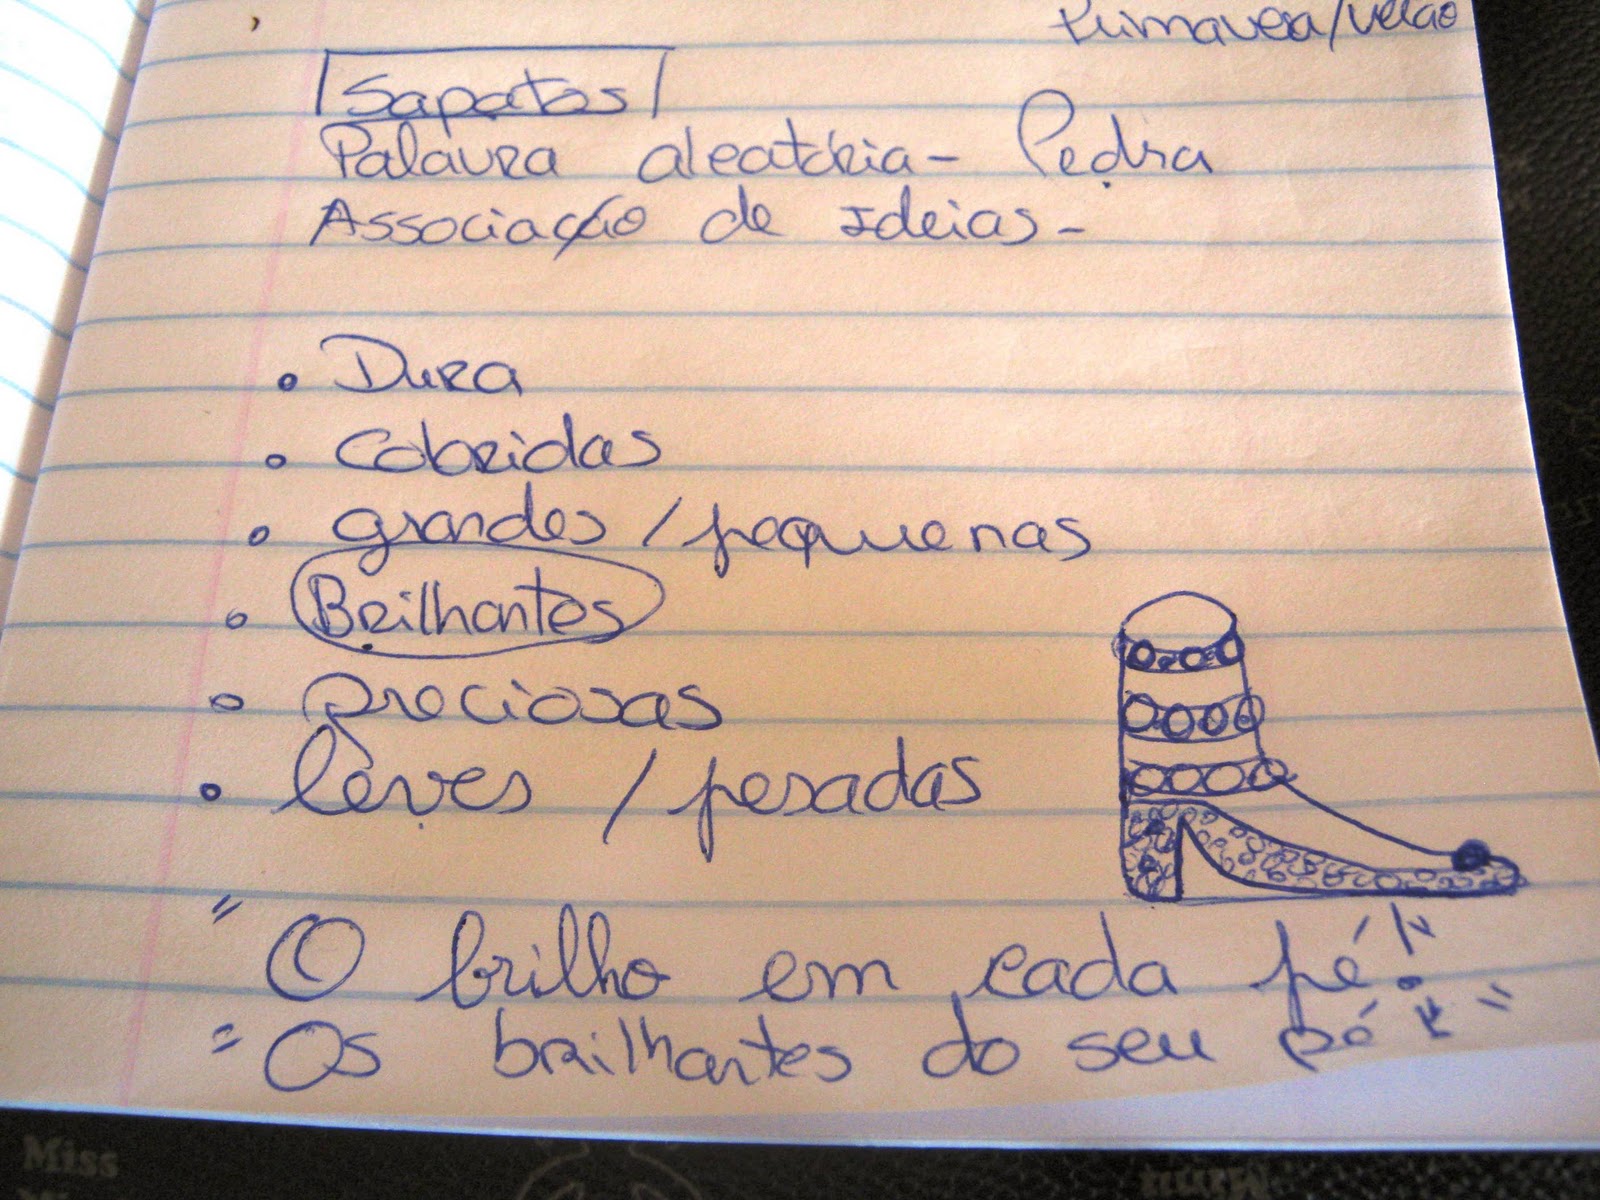 Primavera/Verão
Sapatos
Palavra aleatória - Pedra
Associação de Ideias -
• Dura
• Coloridas
• grandes / pequenas
• Brilhantes
• preciosas
• leves / pesadas
" O brilho em cada pé!
" Os brilhantes do seu pé "
Miss